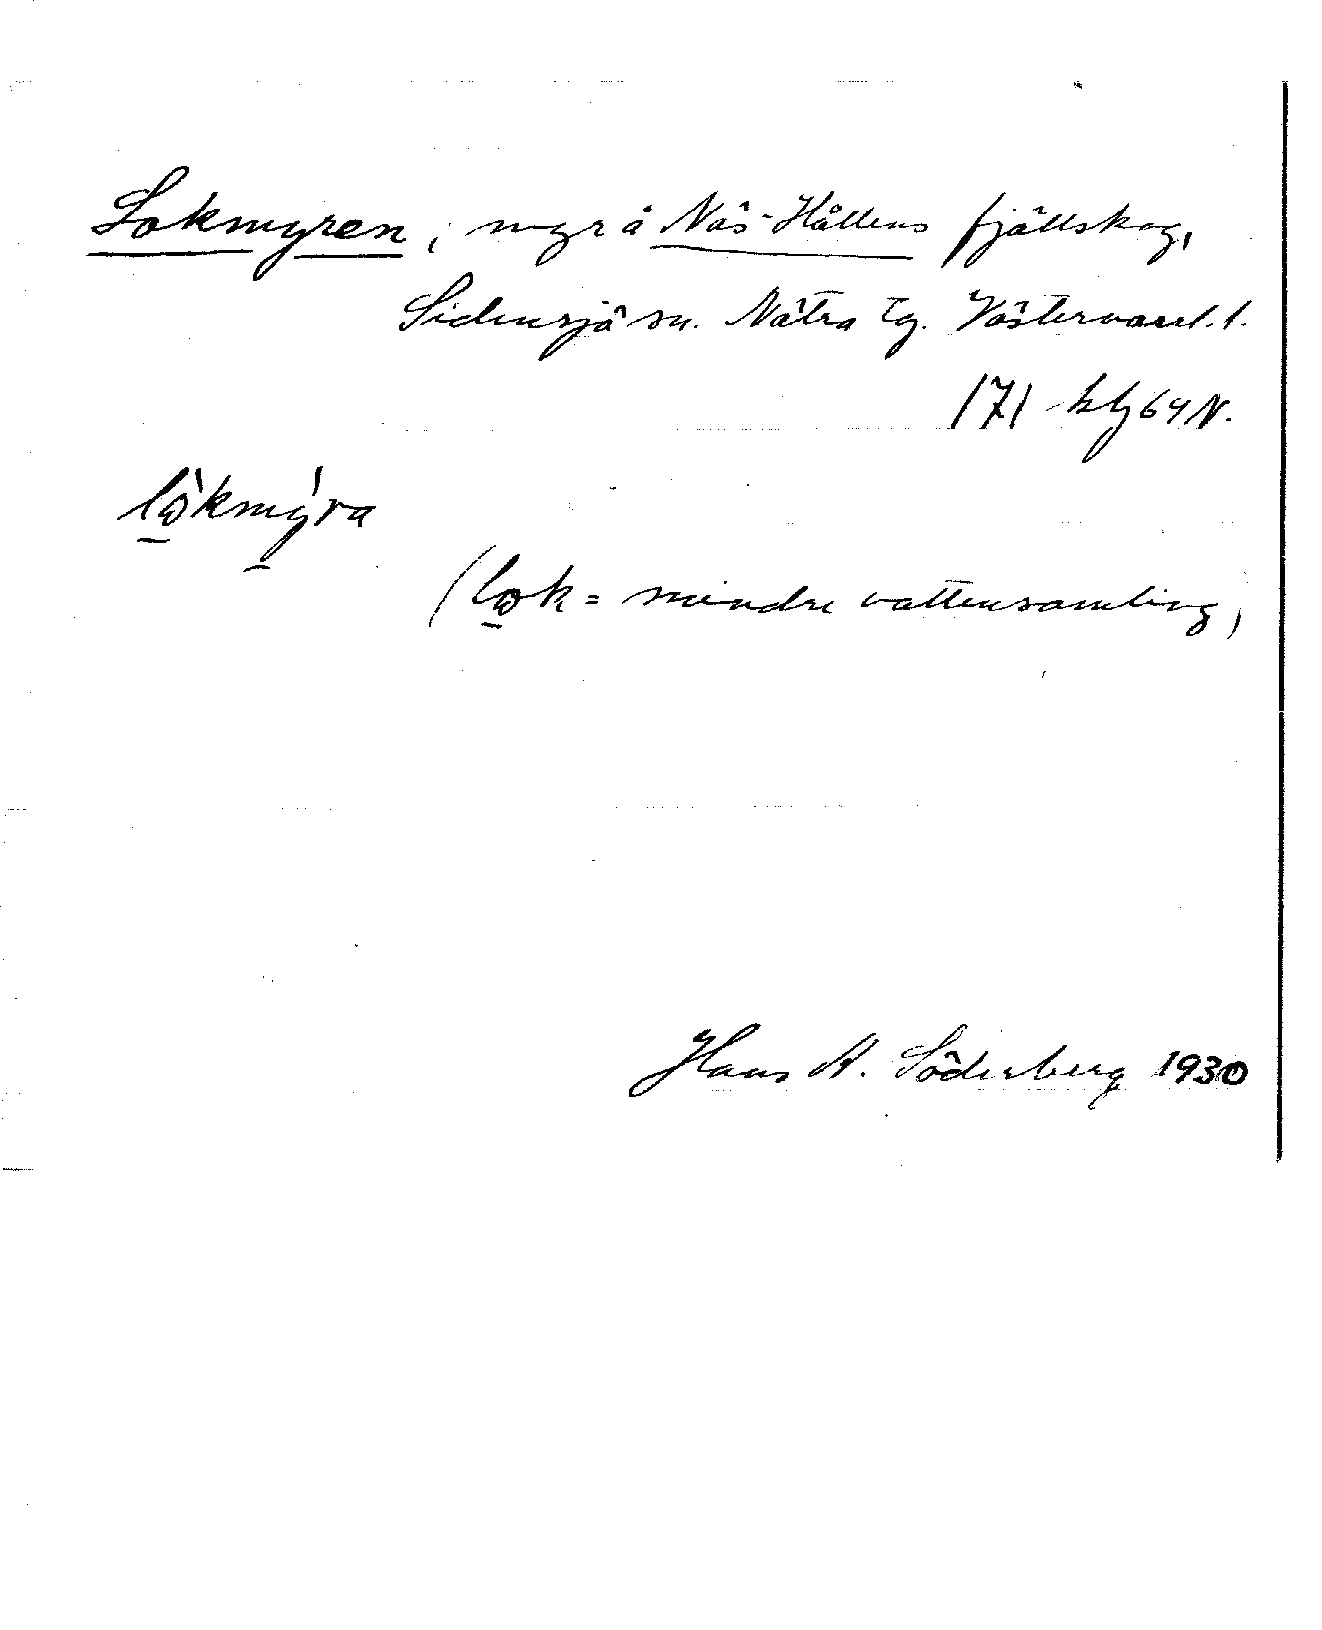 Lokmyren, myr å Näs-Hållens fjällskog,
Sidensjö sn. Nätra tg. Västernorrl. l.
171 blz 64 N.
lòkmýra
(lok = mindre vattensamling)
Hans A. Söderberg 1930